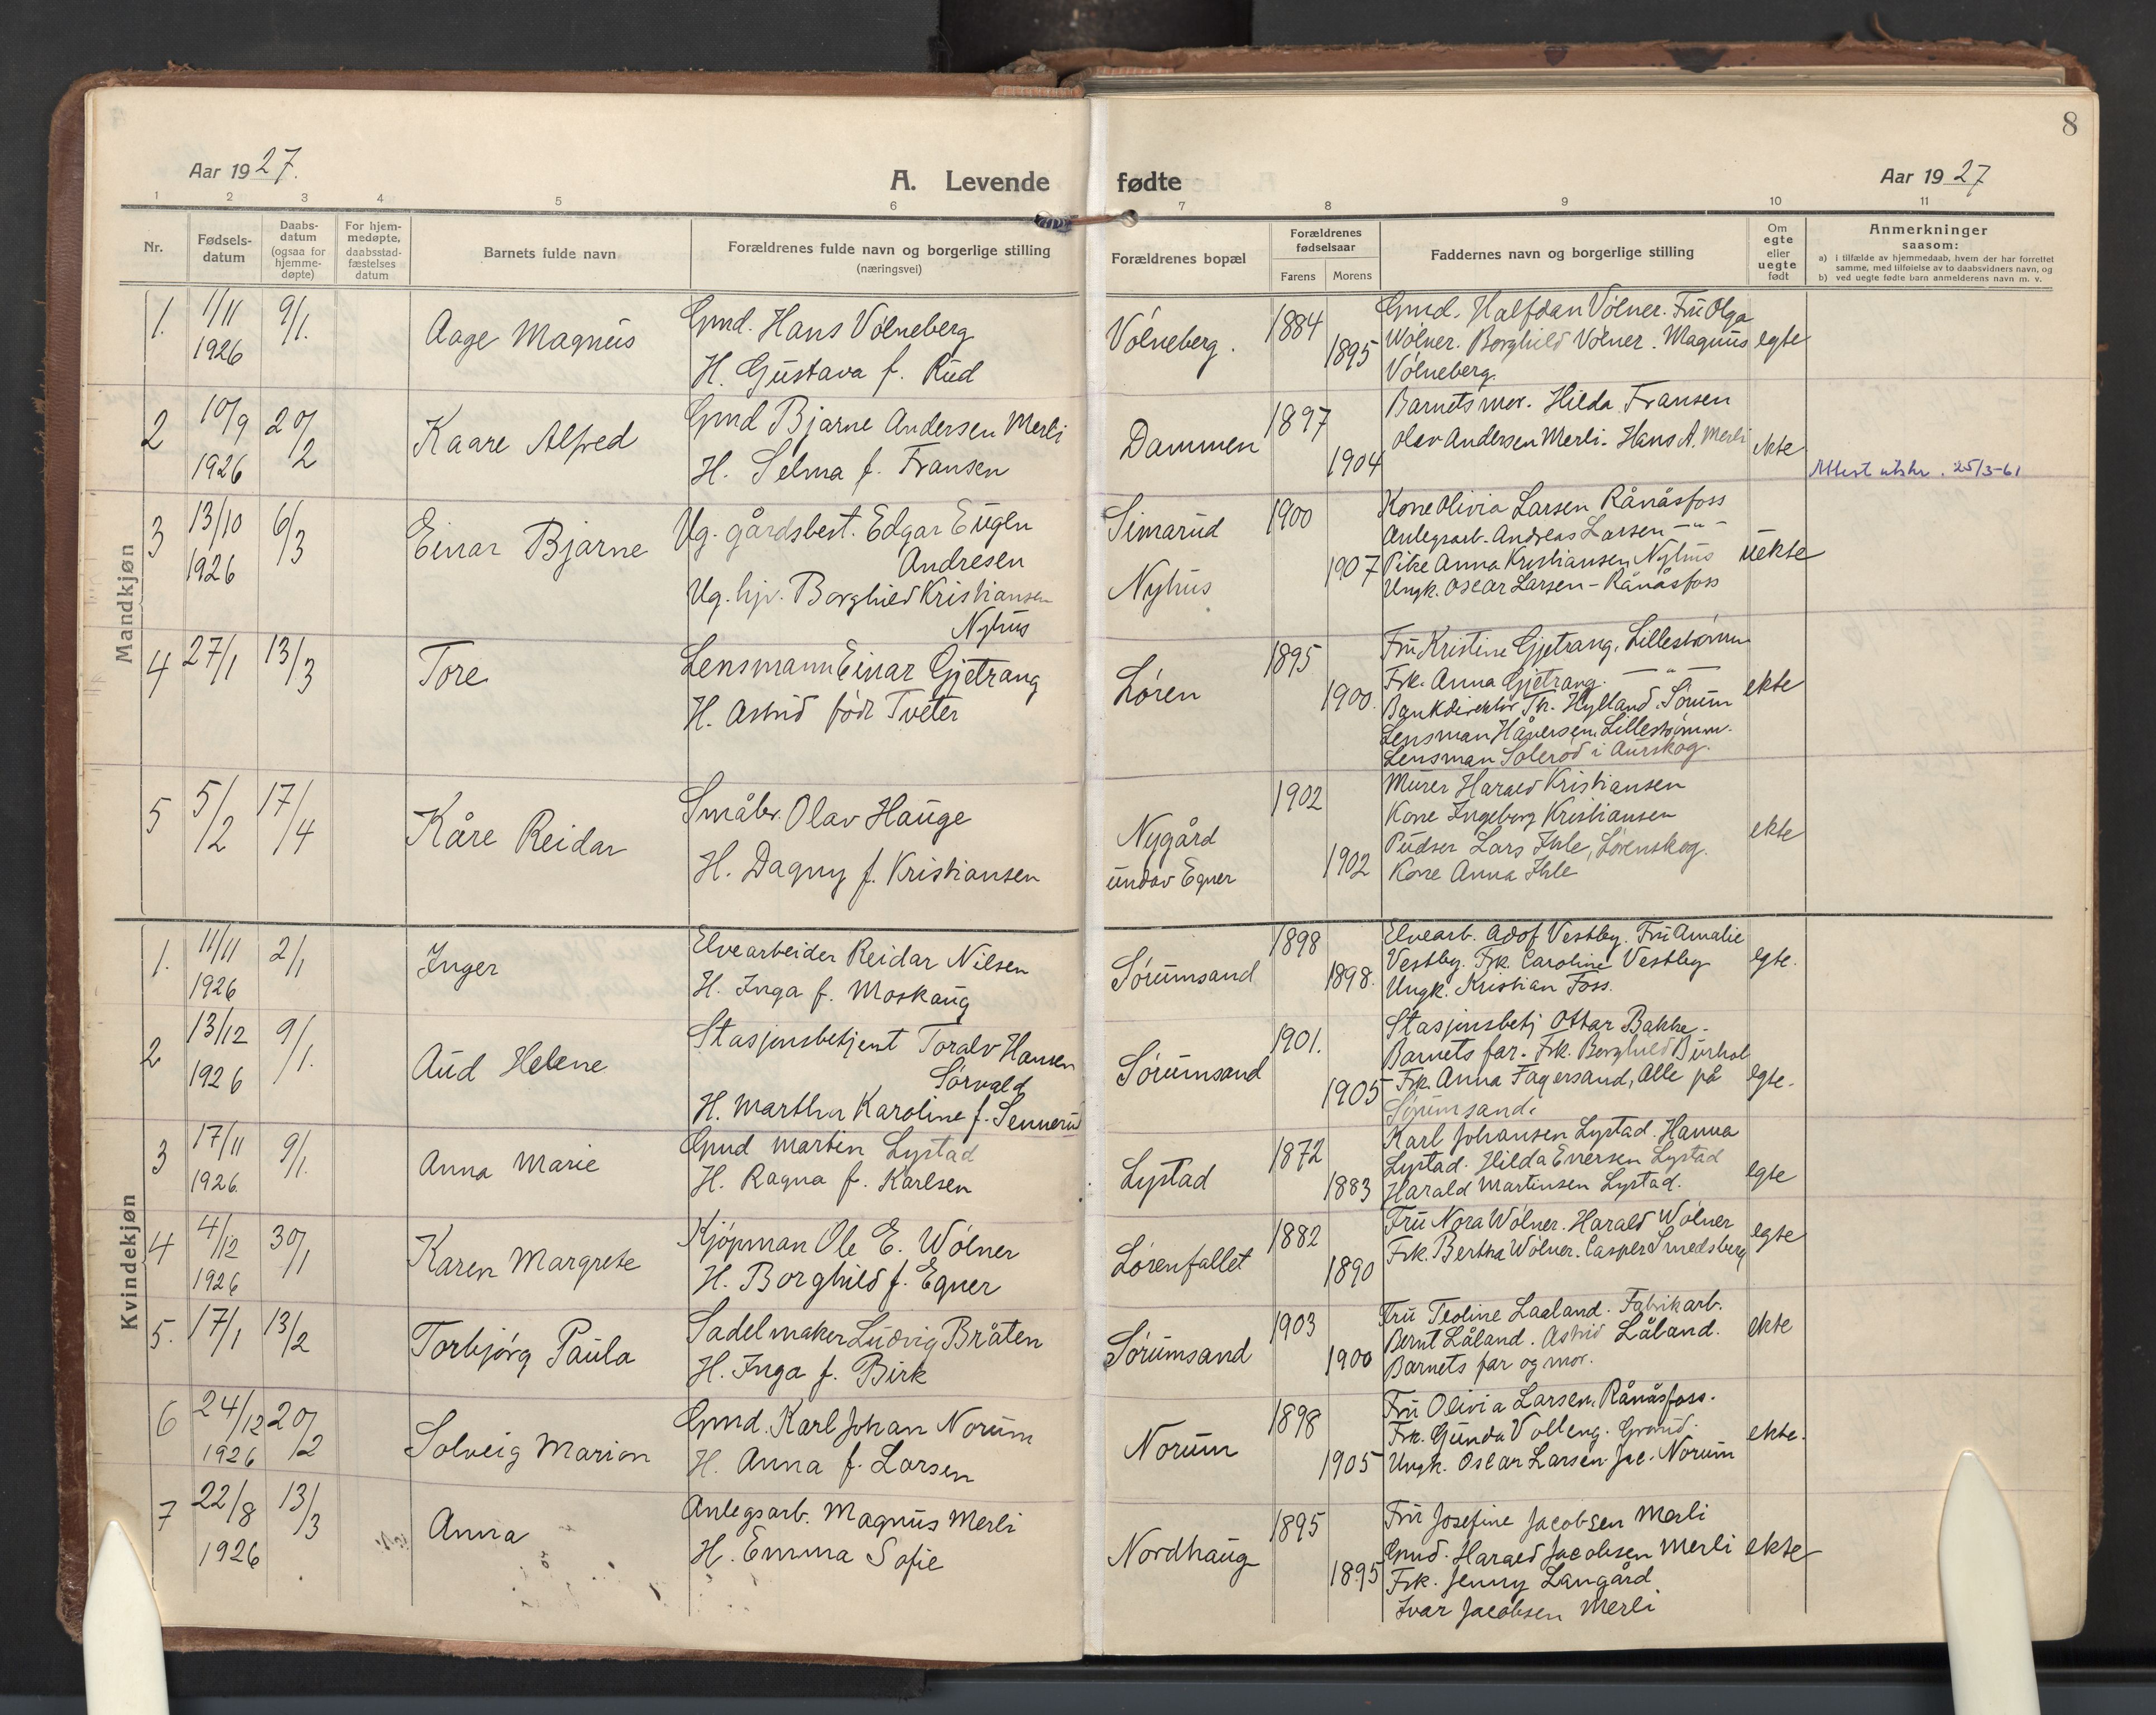 8
Aar 1927.
A. Levende fødte
Aar 1927
1 2 3 4 5 6 7 8 9 10 11
Nr.
Fødsels-
datum
Daabs-
datum
(ogsaa for
hjemme-
døpte)
For hjem-
medøpte,
daabsstad-
fæstelses
datum
Barnets fulde navn
Forældrenes fulde navn og borgerlige stilling
(næringsvei)
Forældrenes bopæl
Forældrenes
fødselsaar
Farens Morens
Faddernes navn og borgerlige stilling
Om
egte
eller
uegte
født
Anmerkninger
saasom:
a) i tilfælde av hjemmedaab, hvem der har forrettet
samme, med tilføielse av to daabsvidners navn, og
b) ved uegte fødte barn anmelderens navn m. v.
Mandkjøn
1. 1/11 1926 9/1. Aage Magnus
Gmd. Hans Vølneberg
H. Gustava f. Rud
Vølneberg. 1884 1895
Gmd. Halfdan Vølner. Fru Olga
Wølner. Borghild Vølner. Magnus
Vølneberg.
egte
2 10/9 1926 20/2 Kaare Alfred
Gmd Bjarne Andersen Merli
H. Selma f. Fransen
Dammen 1897 1904
Barnets mor. Hilda Fransen
Olav Andersen Merli. Hans A. Merli
ekte
Attest utskr. 25/3-61
3 13/10 1926 6/3 Einar Bjarne
Ug. gårdsbest. Edgar Eugen
Andresen
Ug. hjv. Borghild Kristiansen
Nyhus
Simarud
Nyhus
1900 1907
Kone Olivia Larsen Rånåsfoss
Anlegsarb. Andreas Larsen -"-
Pike Anna Kristiansen Nyhus
Ungk. Oscar Larsen - Rånåsfoss
uekte
4 27/1 13/3 Tore
Lensmann Einar Gjetrang
H. Astrid født Tveter
Løren 1895 1900.
Fru Kristine Gjetrang, Lillestrømm
Frk. Anna Gjetrang. -"-
Bankdirektør Th. Hylland. Sørum
Lensman Håversen, Lillestrømm.
Lensman Solerød i Aurskog.
ekte
5 5/2 17/4 Kåre Reidar
Småbr. Olav Hauge
H. Dagny f. Kristiansen
Nygård
undav Egner
1902 1902
Murer Harald Kristiansen
Kone Ingeborg Kristiansen
Pudser Lars Ihle, Lørenskog.
Kone Anna Ihle
ekte
Kvindekjøn
1. 11/11 1926 2/1 Inger
Elvearbeider Reidar Nilsen
H. Inga f. Moskaug
Sørumsand 1898 1898.
Elvearb. Adof Vestby. Fru Amalie
Vestby. Frk. Caroline Vestby
Ungk. Kristian Foss.
egte.
2 13/12 1926 9/1. Aud Helene
Stasjonsbetjent Toralv Hansen
Sørvald
H. Martha Karoline f. Sennerud
Sørumsand 1901. 1905
Stasjonsbetj Ottar Bakke.
Barnets far. Frk. Borghild Burhol
Frk. Anna Fagersand, Alle på
Sørumsand.
egte.
3 17/11 1926. 9/1. Anna Marie
Gmd Martin Lystad
H. Ragna f. Karlsen
Lystad 1872 1883
Karl Johansen Lystad. Hanna
Lystad. Hilda Eversen Lystad
Harald Martinsen Lystad.
egte
4 4/12 1926 30/1 Karen Margrete
Kjøpman Ole E. Wølner
H. Borghild f. Egner
Lørenfallet 1882 1890
Fru Nora Wølner. Harald Wølner
Frk. Bertha Wølner. Casper Smedsberg
egte
5. 17/1 13/2 Torbjørg Paula
Sadelmaker Ludvig Bråten
H. Inga f. Birk
Sørumsand 1903 1900
Fru Teoline Laaland. Fabrikarb.
Bernt Låland. Astrid Låland.
Barnets far og mor.
ekte
6 24/12 1926 20/2 Solveig Marion
Gmd. Karl Johan Norum
H. Anna f. Larsen
Norum 1898 1905
Fru Olivia Larsen. Rånåsfoss.
Frk. Gunda Volleng.
Ungk. Oscar Larsen. Jac. Norum
ekte.
7 22/8 1926 13/3 Anna
Anlegsarb. Magnus Merli
H. Emma Sofie
Nordhaug 1895 1895
Fru Josefine Jacobsen Merli
Gmd. Harald Jacobsen Merli
Frk. Jenny Langård.
Ivar Jacobsen Merli
ekte